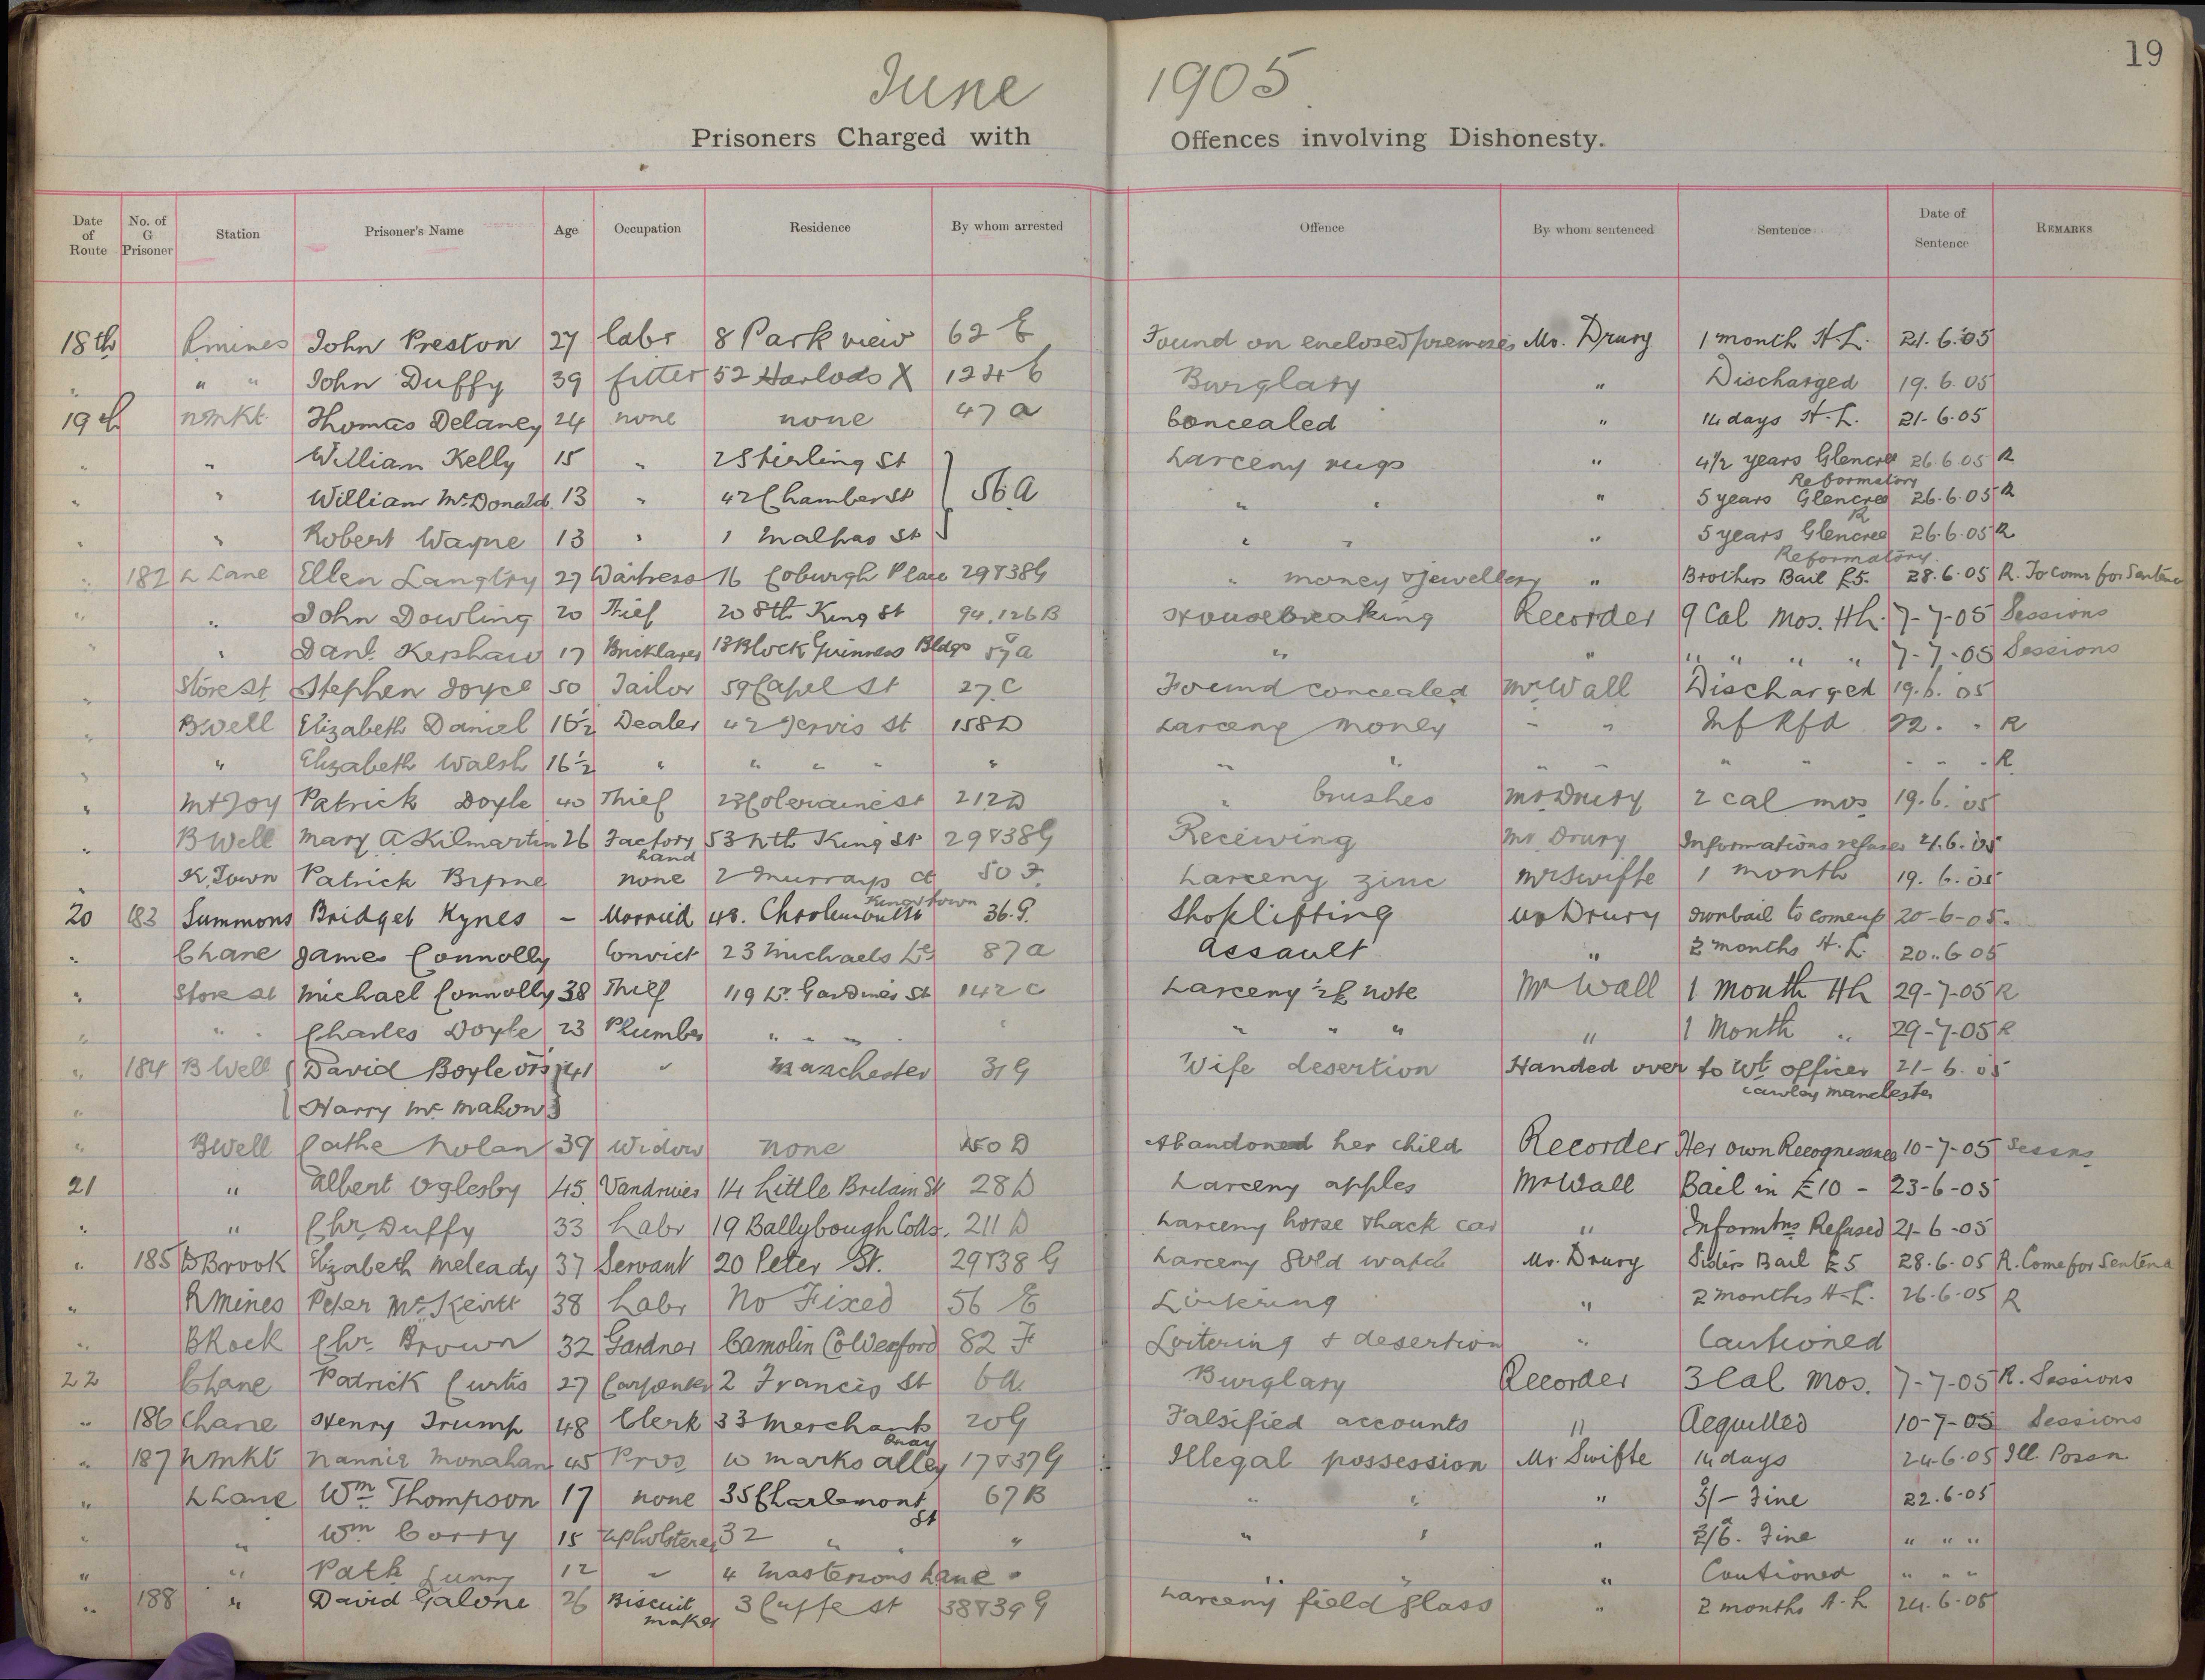 19
June 1905
Prisoners Charged with Offences involving Dishonesty.
Date of Route No. of G Prisoner Station Prisoner's Name Age Occupation Residence By whom arrested Offence By whom sentenced Sentence Date of Sentence REMARKS
18th Rmines John Preston 27 labr 8 Park view 62 E Found on enclosed premises Mr. Drury 1 month H.L. 21.6.05
" " " John Duffy 39 fitter 52 Harlods X 124 E Burglary " Discharged 19.6.05
19th Nmkt. Thomas Delaney 24 none none 47 a Concealed " 14 days H.L. 21-6-05
" " William Kelly 15 " 2 Stirling St 56 a Larceny rugs " 4½ years Glencree Reformatory 26.6.05 R
" " William McDonald 13 " 42 Chamber St " " " 5 years Glencree R 26.6.05 R
" " Robert Wayne 13 " 1 Malpas St " " " 5 years Glencree Reformatory 26.6.05 R
" 182 L Lane Ellen Langtry 27 Waitress 16 Coburgh Place 29&38G " money & jewellery " Brothers Bail £5. 28.6.05 R. To come for Sentence
" " John Dowling 20 Thief 20 Sth King St 94.126B Housebreaking Recorder 9 Cal Mos. HL. 7-7-05 Sessions
" " Danl. Kershaw 17 Bricklayer 13 Block Guinness Bldgs 57a " " " " " " 7-7-05 Sessions
" Store St Stephen Joyce 50 Tailor 59 Capel St 27.C Found concealed Mr Wall Discharged 19.6.05
" Bwell Elizabeth Daniel 16½ Dealer 42 Jervis St 158D Larceny money " " Inf Rfd 22. " R
" " Elizabeth Walsh 16½ " " " " " " " " " " " " " " R
" Mt Joy Patrick Doyle 40 Thief 23 Coleraine St 212D " brushes Mr Drury 2 cal mos 19.6.05
" B Well Mary A Kilmartin 26 Factory hand 53 Nth King St 29&38G Receiving Mr Drury Informations refused 21.6.05
" K. Town Patrick Byrne none 2 Murrays Ct 50 F. Larceny zinc Mr Swifte 1 month 19.6.05
20 183 Summons Bridget Kynes – Married 48. 36.G. Shoplifting Mr Drury own bail to come up 20-6-05.
" C Lane James Connolly Convict 23 Michaels 87a Assault " 2 months H.L. 20.6 05
" Store St Michael Connolly 38 Thief 119 Lr. Gardiner St 142 C Larceny ½ £ note Mr Wall 1 Month HL 29-7-05 R
" " " Charles Doyle 23 Plumber " " " " " " " " 1 Month " 29-7-05 R
" 184 B Well David Boyle ors 41 " Manchester 31G Wife desertion Handed over to Wt officer 21-6.05
" Harry McMahon Cawley Manchester
" Bwell Cathe Nolan 39 Widow none 150 D Abandoned her child Recorder Her own Recognisances 10-7-05 Sessns
21 " Albert Oglesby 45 14 Little Britain St 28D Larceny apples Mr Wall Bail in £10 – 23-6-05
" " Chr. Duffy 33 Labr 19 Ballybough Cotts. 211 D Larceny horse & hack car " Informtns Refused 21-6-05
" 185 DBrook Elizabeth Meleady 37 Servant 20 Peter St. 29&38 G Larceny gold watch Mr. Drury Sisters Bail £5 28.6.05 R. Come for Sentence
" Rmines Peter 38 Labr No Fixed 56 E Loitering " 2 months H.L. 26.6.05 R
" BRock Chr. Brown 32 Gardner Camolin Co Wexford 82 F Loitering & desertion " Cautioned
22 C Lane Patrick Curtis 27 Carpenter 2 Francis St 6a. Burglary Recorder 3 Cal Mos. 7-7-05 R. Sessions
" 186 C Lane Henry Trump 48 Clerk 33 Merchants Quay 20G Falsified accounts " Acquitted 10-7-05 Sessions
" 187 Nmkt Nannie Monahan 45 Pros 10 Marks alley 17&37G Illegal possession Mr Swifte 14 days 24.6.05 Ill. Possn
" L Lane Wm Thompson 17 none 35 Charlemont St 67B " " " 5/- Fine 22.6.05
" " Wm Corry 15 Upholsterer 32 " " " " " " 2/6. Fine " " "
" " Patk Lunny 12 " 4 Mastersons Lane " " " " Cautioned " " "
" 188 " David Galone 26 Biscuit maker 3 Cuffe St 38&39G Larceny field glass " 2 months H.L 24.6.05